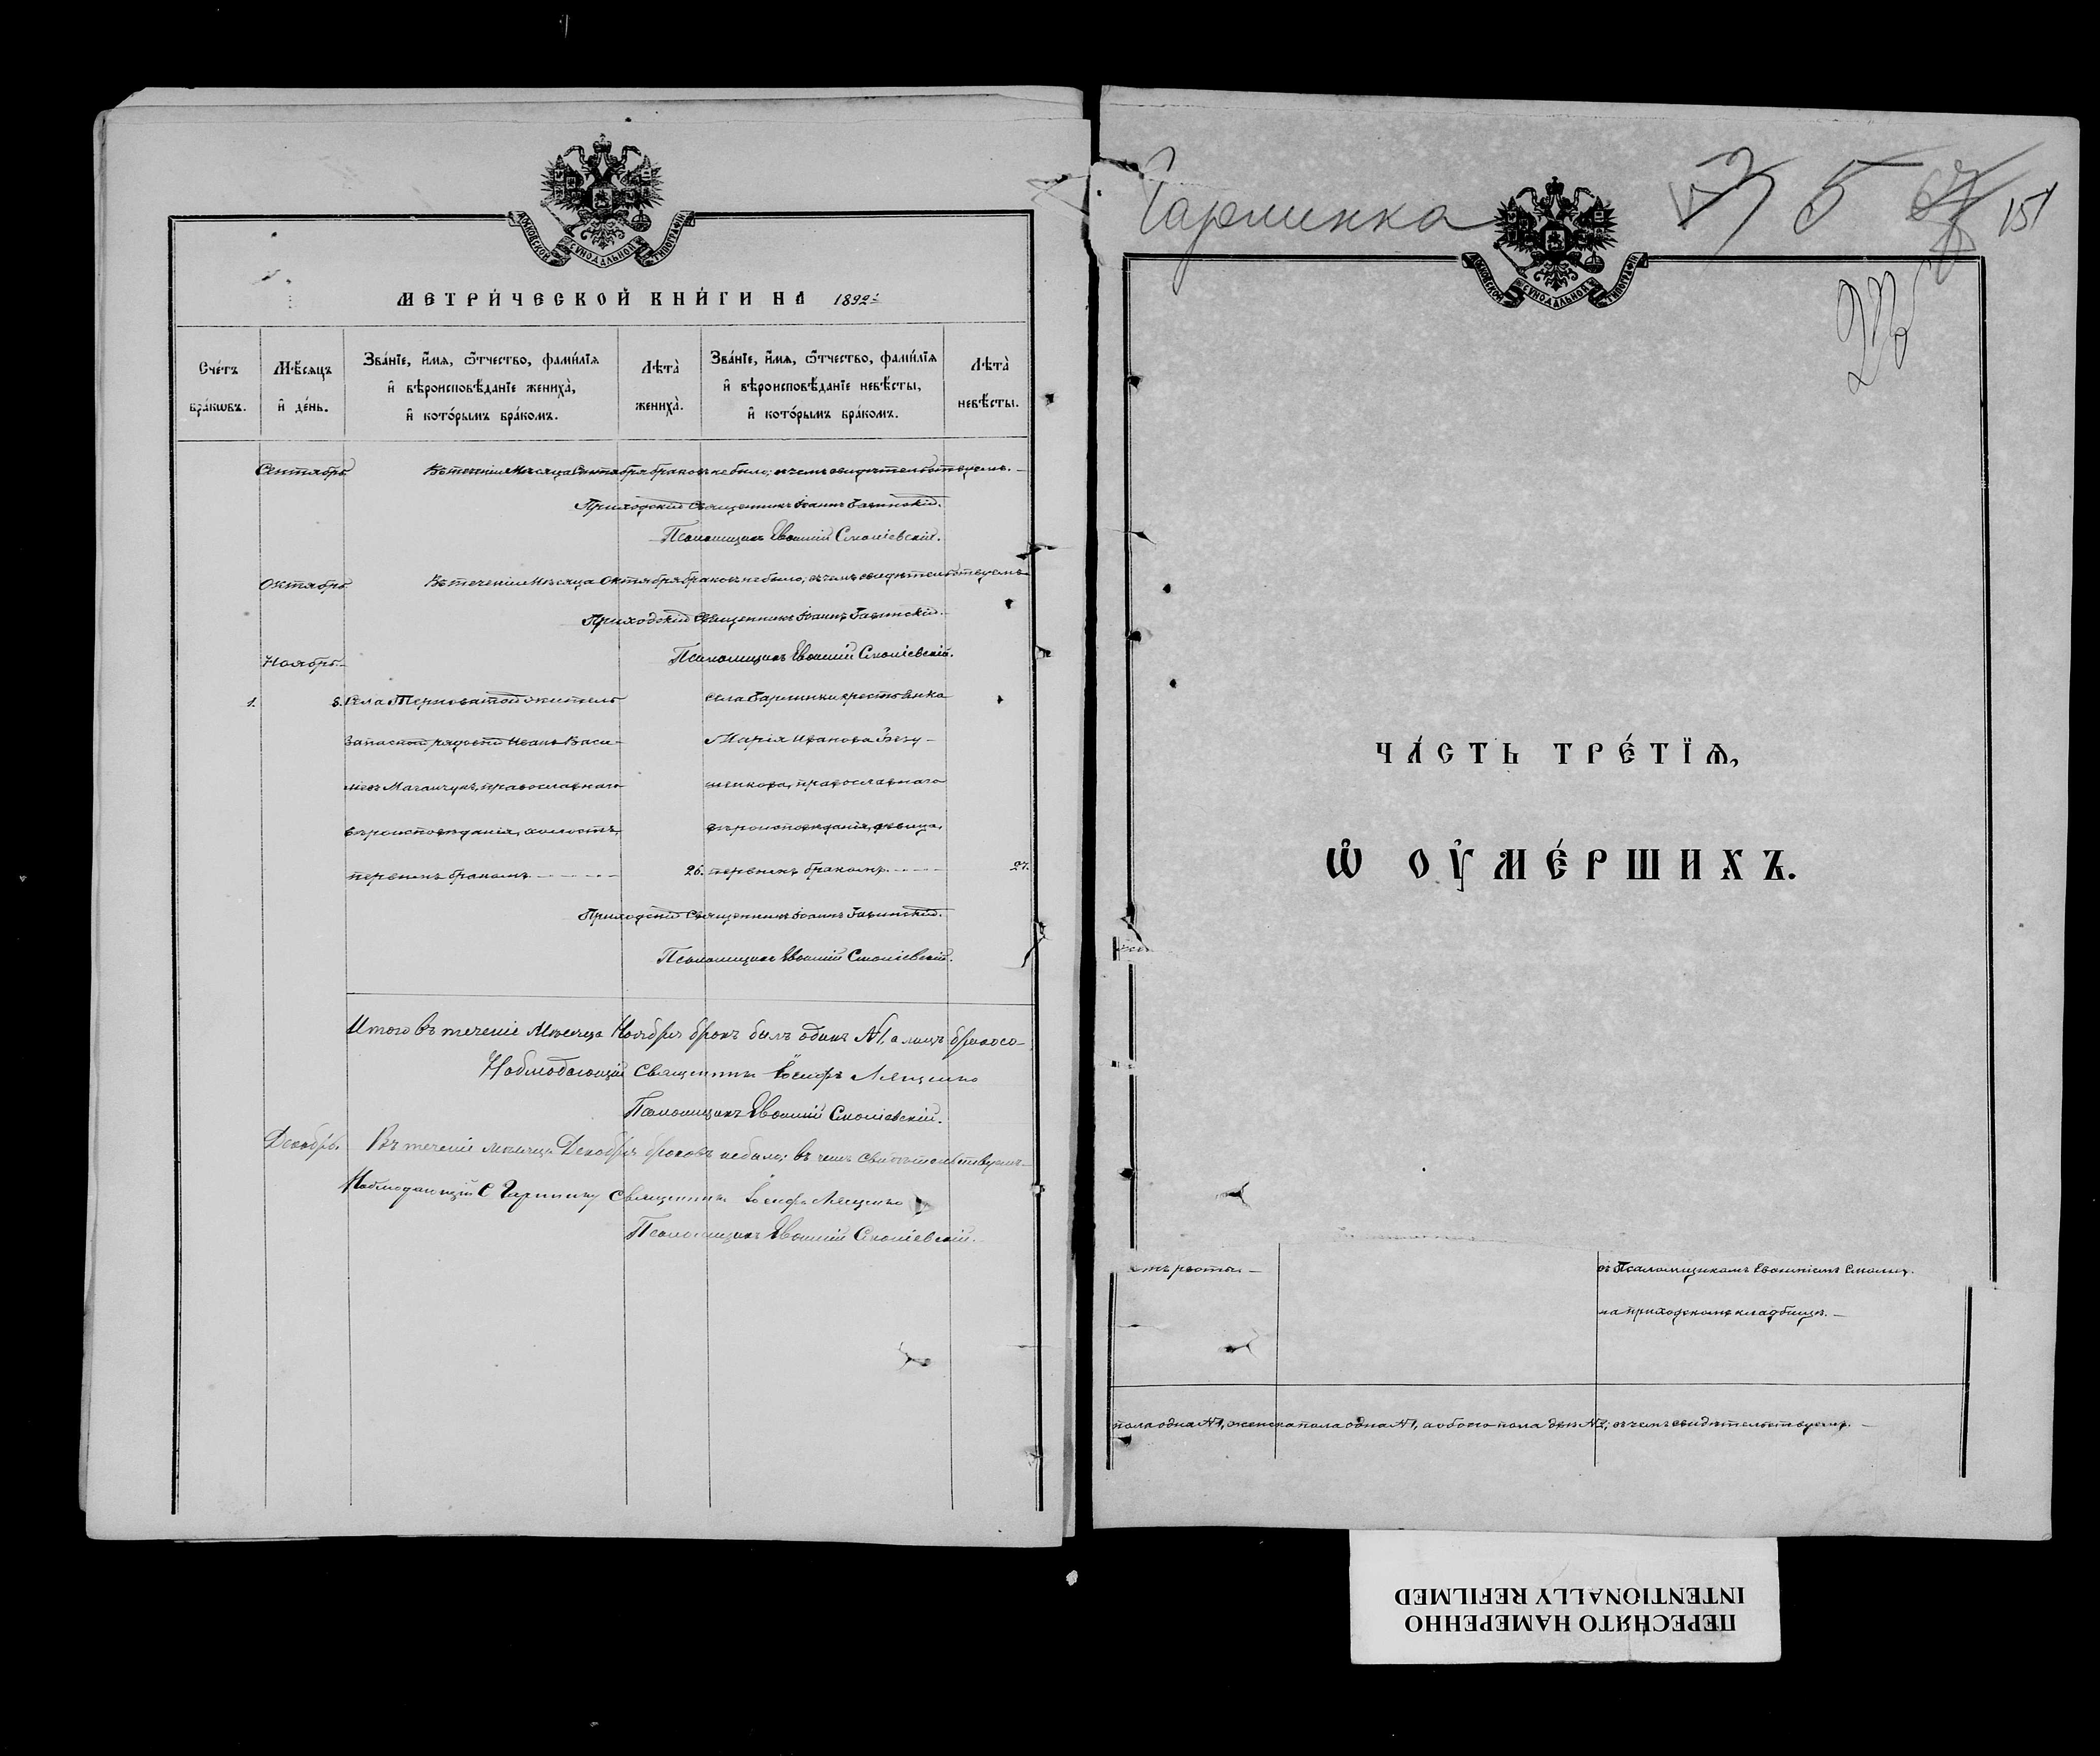 МОСКОВСКОЙ СѴНОДАЛЬНОЙ ТИПОГРАФІИ
МЕТРИ́ЧЕСКОЙ КНИ́ГИ НА 1892 г.
Сче́тъ бра́кѡвъ.
Мѣ́сяцъ и҆ де́нь.
Зва́нїе, и҆́мя, ѻ҆́тчество, фами́лїя
и҆ вѣроисповѣ́данїе жениха̀,
и҆ кото́рымъ бра́комъ.
Лѣта̀ жениха̀.
Зва́нїе, и҆́мя, ѻ҆́тчество, фами́лїя
и҆ вѣроисповѣ́данїе невѣ́сты,
и҆ кото́рымъ бра́комъ.
Лѣта̀ невѣ́сты.
Сентябрь Въ теченіи Мѣсяца Сентября браковъ не было; въ чемъ свидѣтельствуемъ. —
Приходскій Священникъ Іоаннъ
Псаломщикъ
Октябрь Въ теченіи Мѣсяца Октября браковъ не было, въ чемъ свидѣтельствуемъ
Приходскій Священникъ Іоаннъ
Псаломщикъ
Ноябрь.
1. 8. Села Терноватой житель
запасной рядовой Иванъ Васи-
льевъ православнаго
вѣроисповѣданія, холостъ,
первымъ бракомъ 26.
села Гарминки крестьянка
Марія Иванова
православнаго
вѣроисповѣданія, дѣвица,
первымъ бракомъ. 27.
Приходскій Священникъ Іоаннъ
Псаломщикъ
Итого въ теченіе Мѣсяца Ноября бракъ былъ одинъ №1, а лицъ бракосо-
Наблюдающій Священникъ Іосифъ Лященко
Псаломщикъ
Декабрь. Въ теченіе мѣсяца Декабря браковъ не было; въ чемъ свидѣтельствуемъ
Наблюдающій С Священникъ Іосифъ Лященко
Псаломщикъ
Гарминка 5 151
МОСКОВСКОЙ СѴНОДАЛЬНОЙ ТИПОГРАФІИ
ЧА́СТЬ ТРЕ́ТЇѦ,
Ѡ҆ ОУ҆МЕ́РШИХЪ.
Псаломщикомъ
на приходскомъ кладбищѣ. —
пола одна №1, женска пола одна №1, а обоего пола двѣ №2; въ чемъ свидѣтельствуемъ. —
ПЕРЕСНЯТО НАМЕРЕННО
INTENTIONALLY REFILMED